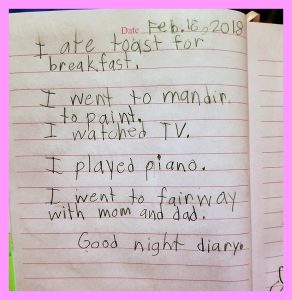 Date Feb. 18, 2018
I ate toast for
breakfast.
I went to mandir
to paint.
I watched TV.
I played piano.
I went to fairway
with mom and dad.
Good night diary.